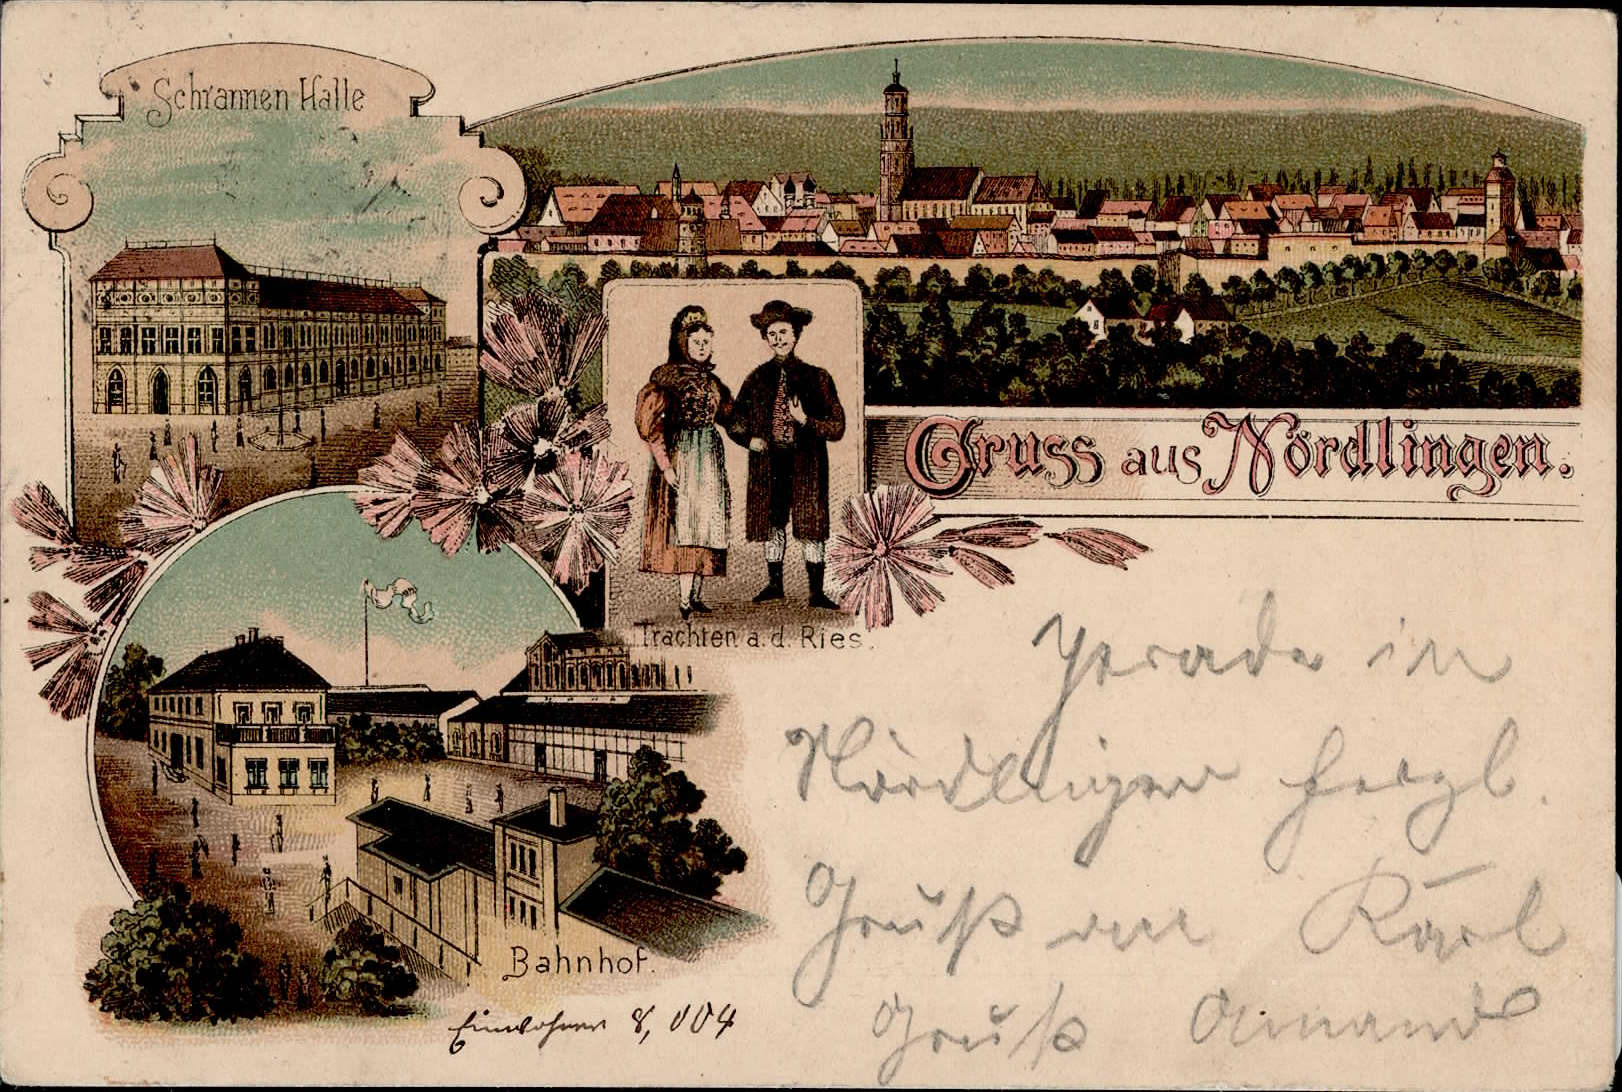 Schrannen Halle
Gruss aus Nördlingen.
Trachten a. d. Ries.
Bahnhof.
Einwohner 8,004
Gerade in
Nördlingen herzl.
Gruß an Karl
Gruß Amand